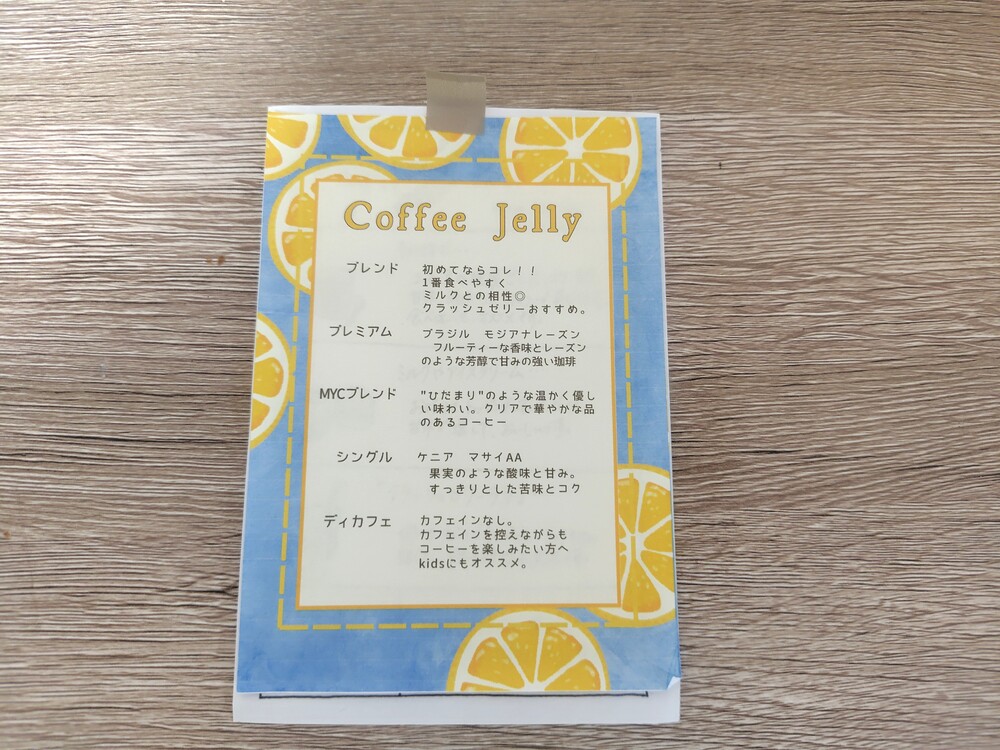 Coffee Jelly
ブレンド
初めてならコレ！！
1番食べやすく
ミルクとの相性◎
クラッシュゼリーおすすめ。
プレミアム
ブラジル　モジアナレーズン
フルーティーな香味とレーズン
のような芳醇で甘みの強い珈琲
MYCブレンド
"ひだまり"のような温かく優し
い味わい。クリアで華やかな品
のあるコーヒー
シングル
ケニア　マサイAA
果実のような酸味と甘み。
すっきりとした苦味とコク
ディカフェ
カフェインなし。
カフェインを控えながらも
コーヒーを楽しみたい方へ
kidsにもオススメ。